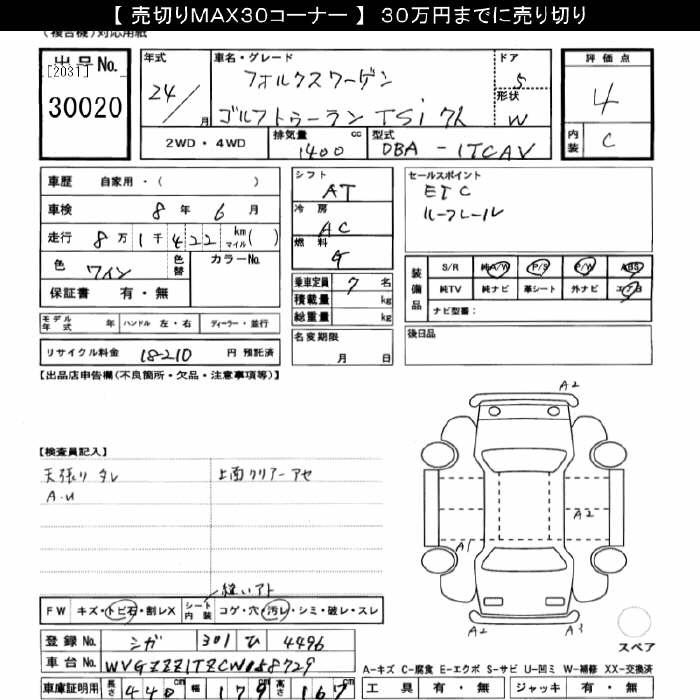 【 売切りMAX30コーナー 】 30万円までに売り切り
(複合機)対応用紙
出品No. [2031] 30020
年式 24/ 月
車名・グレード フォルクスワーゲン ゴルフトゥーラン TSi
ドア 5
形状 W
2WD・4WD
排気量 1400 cc
型式 DBA-1TCAV
評価点 4
内装 C
車歴 自家用・( )
車検 8年 6月
走行 8万1千422 km マイル( )
色 ワイン 色替 カラーNo.
保証書 有・無
シフト AT
冷房 AC
燃料 G
乗車定員 7名
積載量 kg
総重量 kg
セールスポイント
ETC
ルーフレール
装備品
S/R 純A/W P/S P/W ABS
純TV 純ナビ 革シート 外ナビ エアB
ナビ型番:
モデル年式 年 ハンドル 左・右 ディーラー・並行
名変期限 月 日
後日品
リサイクル料金 18210 円 預託済
【出品店申告欄(不良箇所・欠品・注意事項等)】
A2
【検査員記入】
天張り タレ 上面クリアーアセ
A.U
A2
A1
縫いアト
FW キズ・トビ石・割レX シート内装 コゲ・穴・汚レ・シミ・破レ・スレ
A2 A3
スペア
登録No. シガ 301 ひ 4496
車台No. WVGZZZ1TZCW058729
A-キズ C-腐食 E-エクボ S-サビ U-凹ミ W-補修 XX-交換済
車庫証明用 長さ 440cm 幅 179cm 高さ 167cm
工具 有・無 ジャッキ 有・無